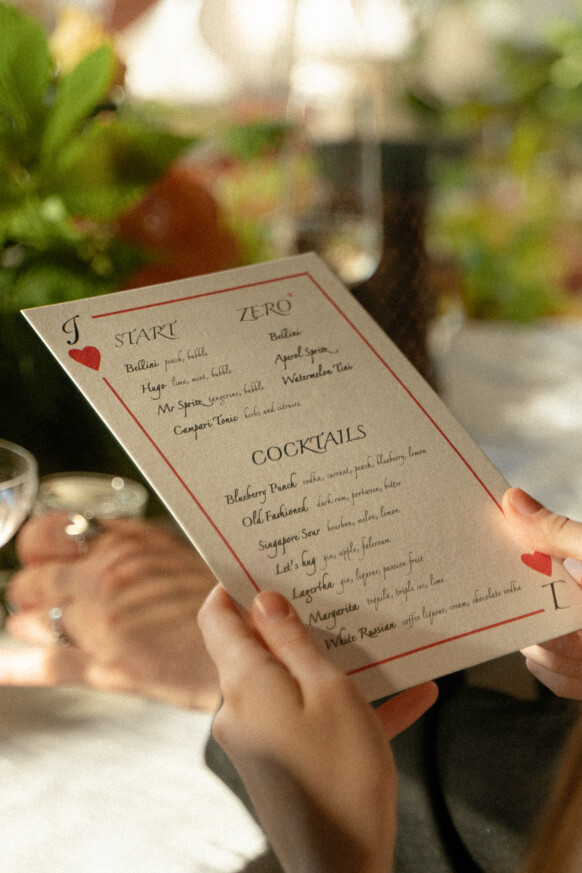 J
START
Bellini peach, bubble
Hugo lime, mint, bubble
Mr Spritz tangerine, bubble
Campari Tonic herbs and citruses
ZERO°
Bellini
Aperol Spritz
Watermelon Tini
COCKTAILS
Blueberry Punch vodka, currant, peach, blueberry, lemon
Old Fashioned dark rum, porto, bitter
Singapore Sour bourbon, melon, lemon
Let's hug gin, apple, falernum
Lagertha gin, liqueur, passion fruit
Margarita tequila, triple sec, lime
White Russian coffee liqueur, cream, chocolate vodka
J